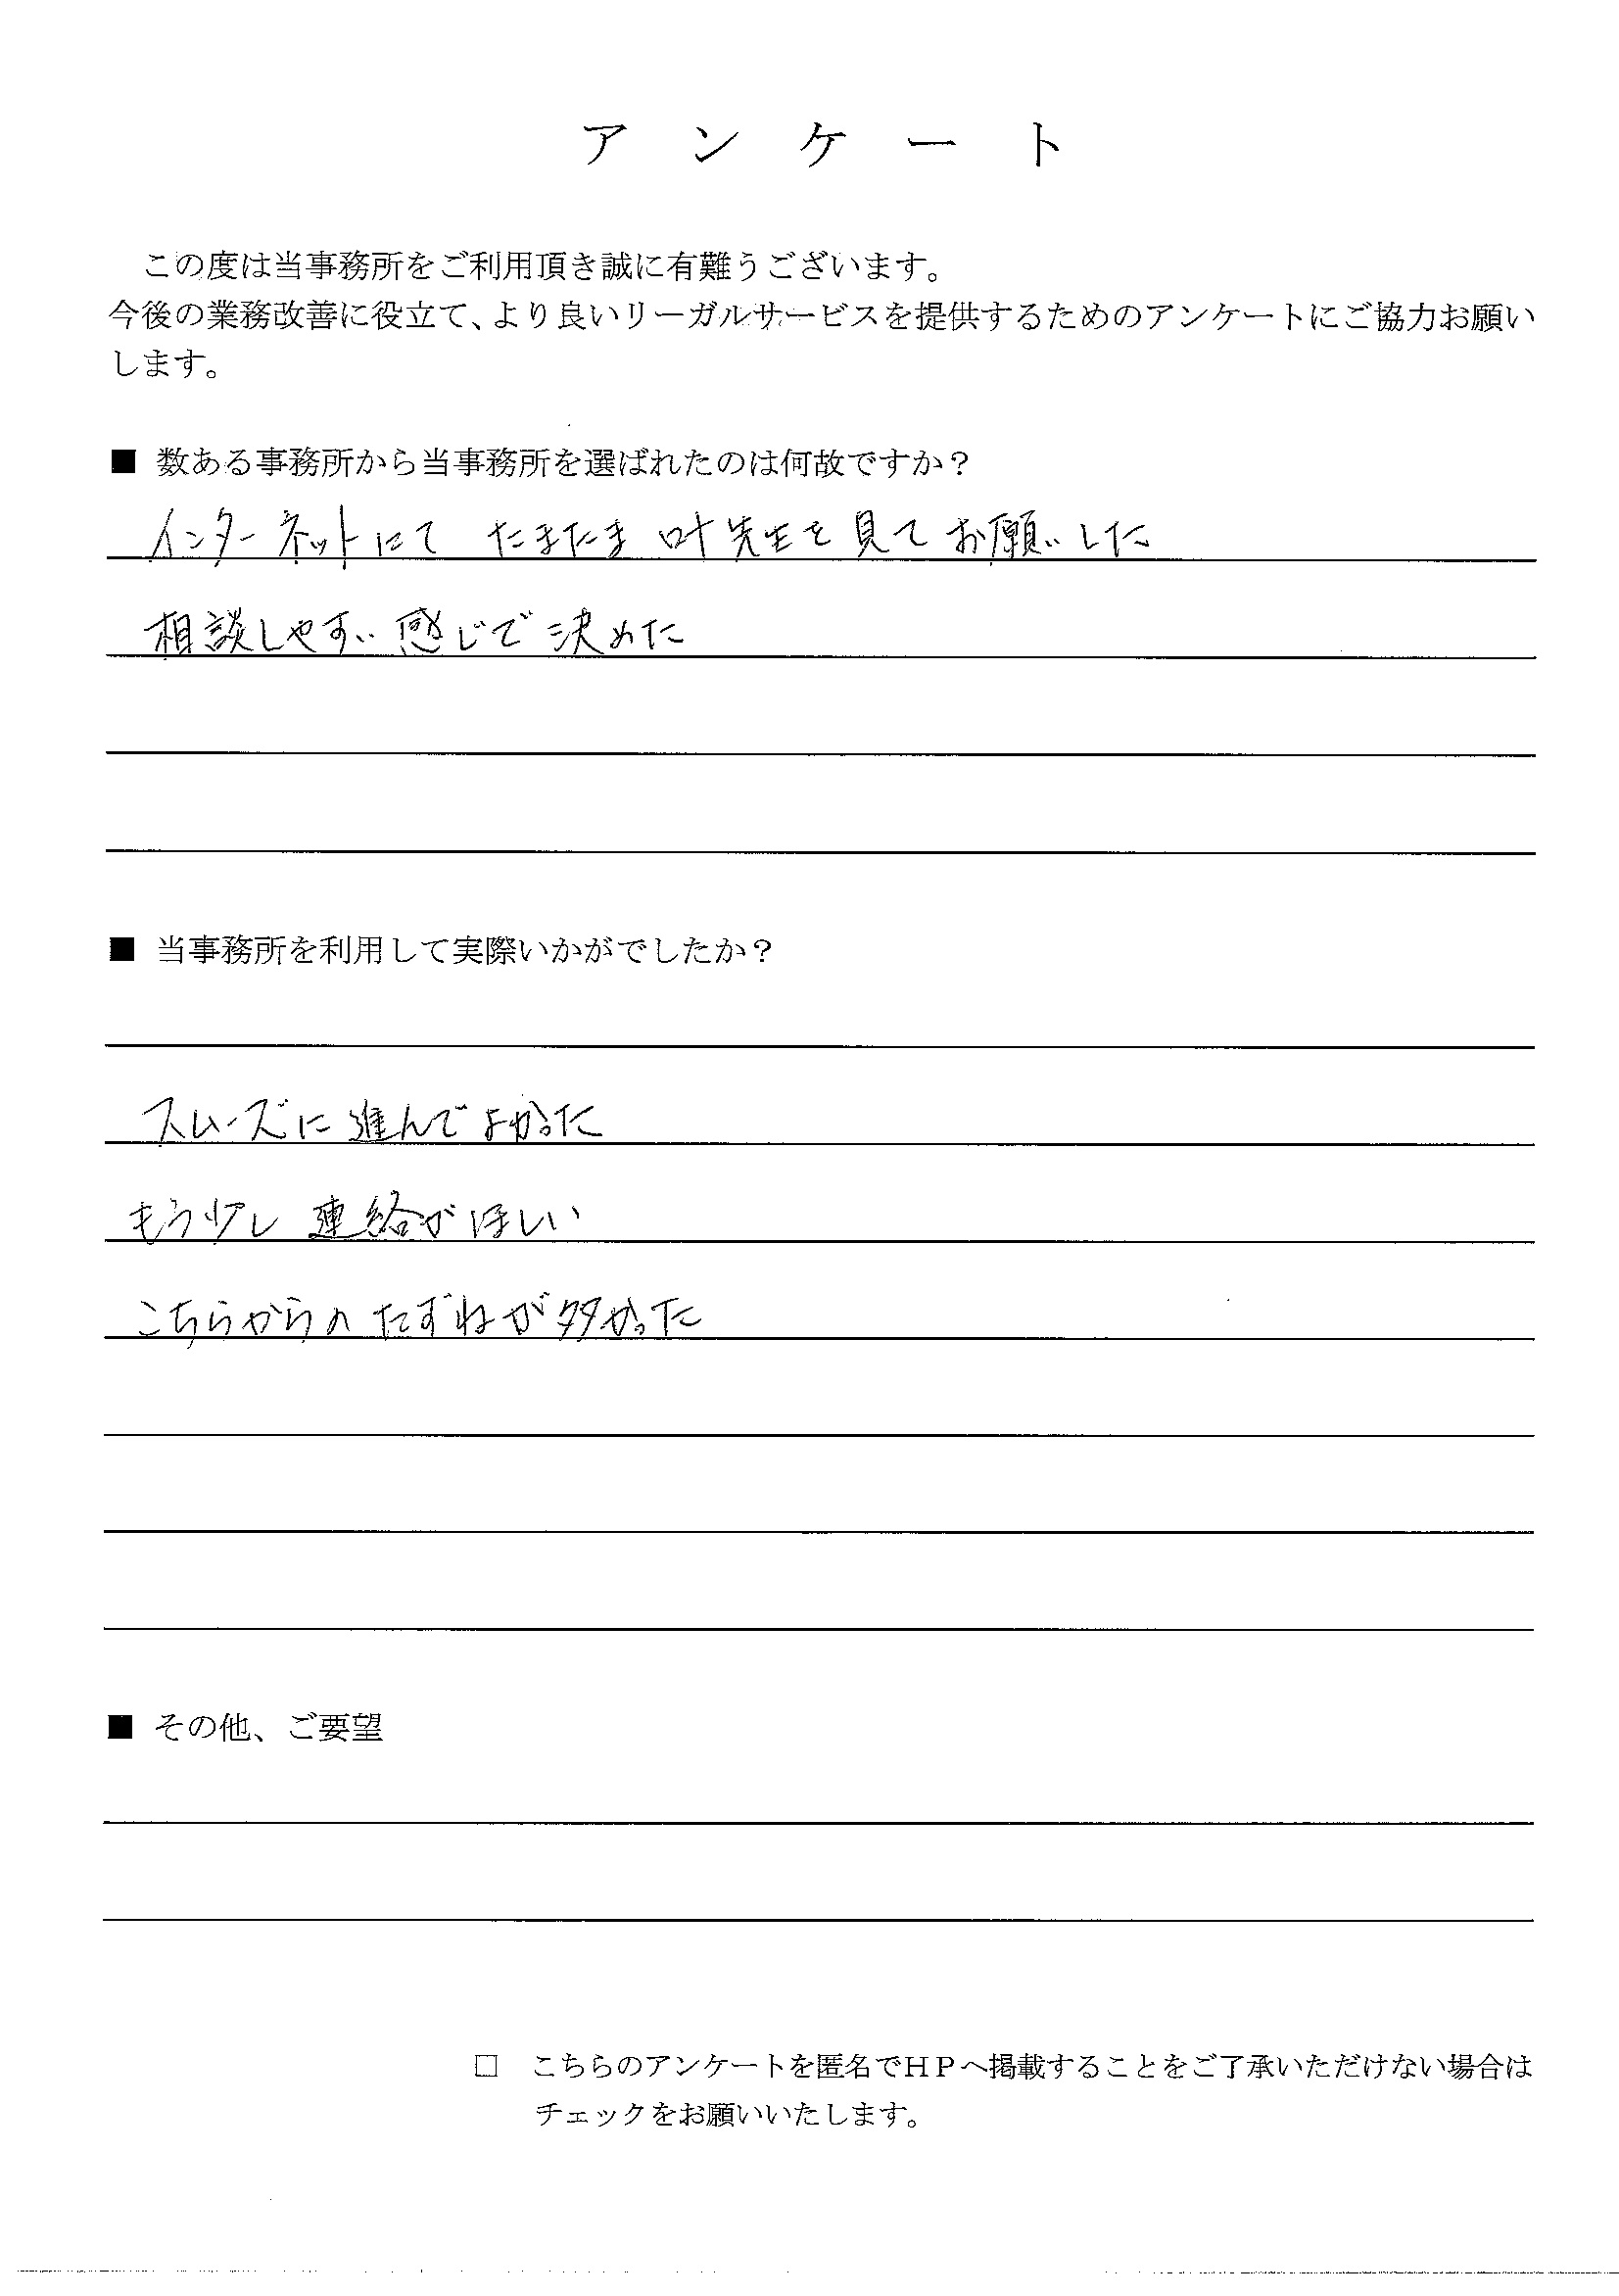 アンケート
この度は当事務所をご利用頂き誠に有難うございます。
今後の業務改善に役立て、より良いリーガルサービスを提供するためのアンケートにご協力お願い
します。
■ 数ある事務所から当事務所を選ばれたのは何故ですか？
インターネットにて たまたま 叶先生を見てお願いした
相談しやすい感じで決めた
■ 当事務所を利用して実際いかがでしたか？
スムーズに進んでよかった
もう少し連絡がほしい
こちらからのたずねが多かった
■ その他、ご要望
□ こちらのアンケートを匿名でＨＰへ掲載することをご了承いただけない場合は
チェックをお願いいたします。